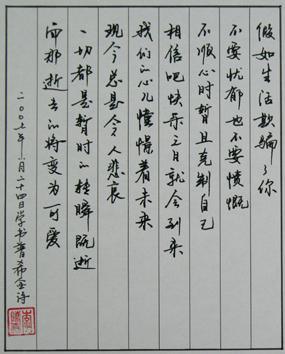 假如生活欺骗了你
不要忧郁也不要愤慨
不顺心时暂且克制自己
相信吧快乐之日就会到来
我们的心儿憧憬着未来
现今总是令人悲哀
一切都是暂时的转瞬既逝
而那逝去的将变为可爱
二〇〇七年八月二十四日学书普希金诗